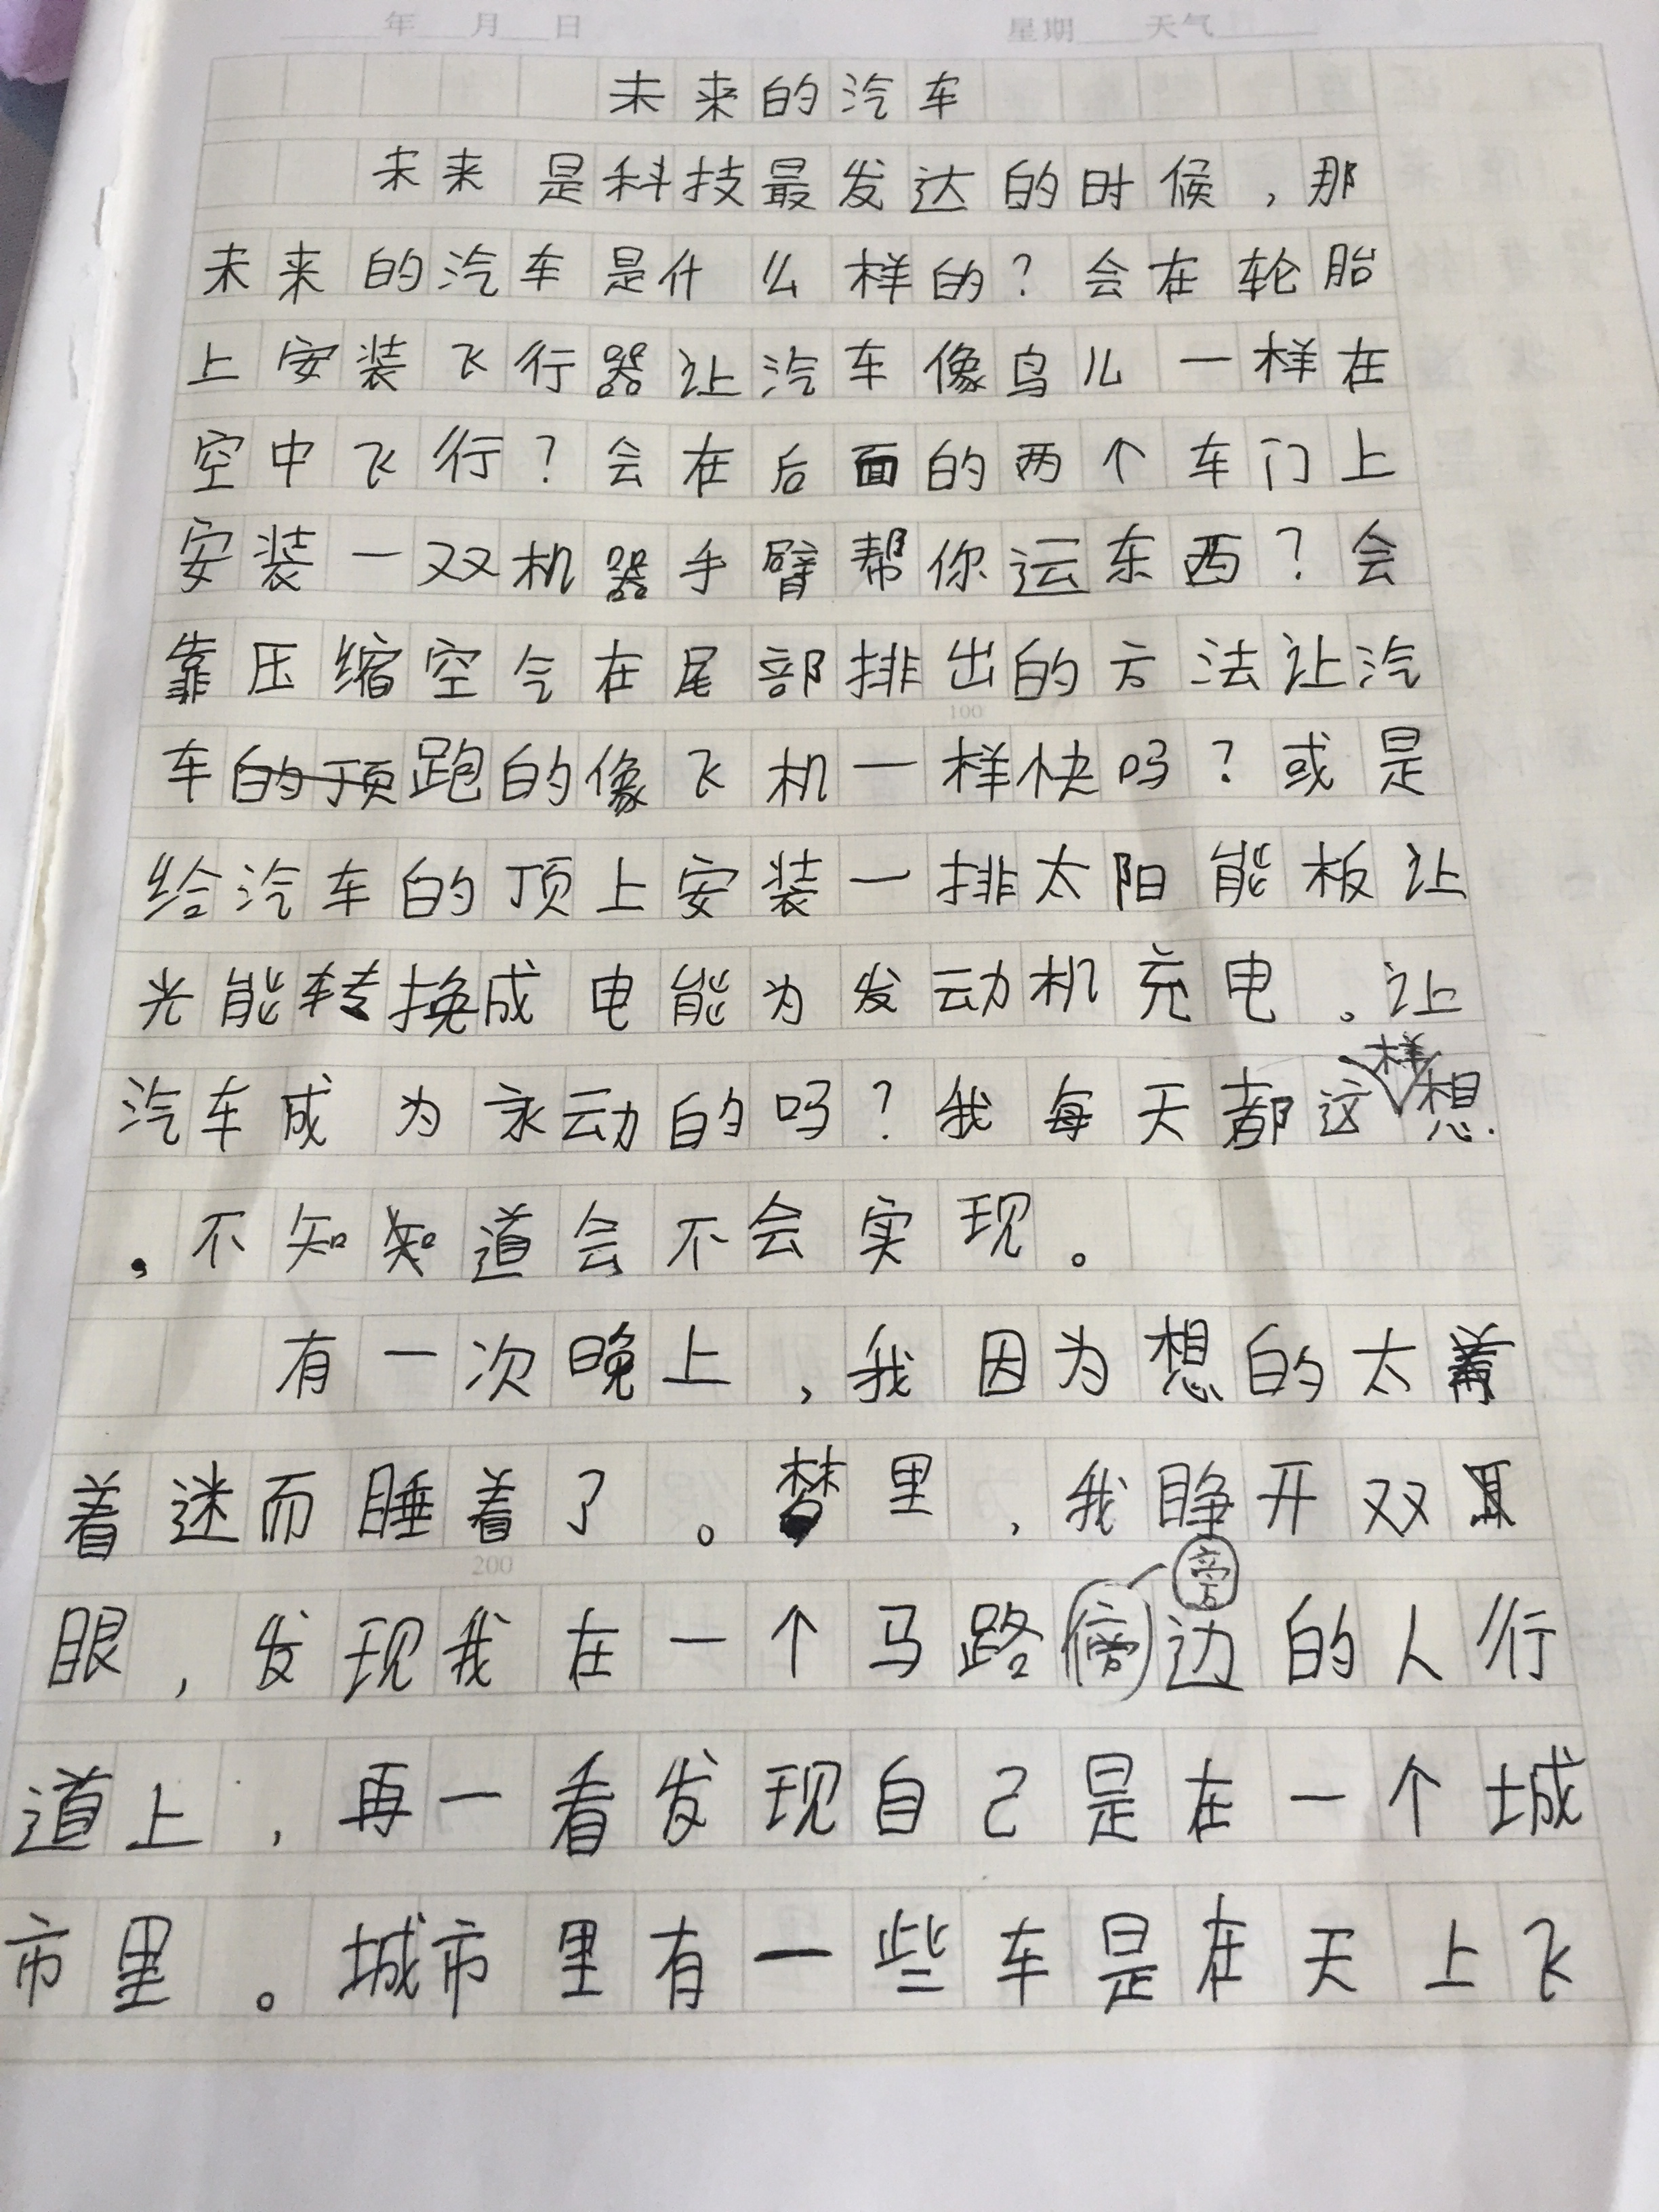 年 月 日 星期 天气
未来的汽车
未来是科技最发达的时候，那
未来的汽车是什么样的？会在轮胎
上安装飞行器让汽车像鸟儿一样在
空中飞行？会在后面的两个车门上
安装一双机器手臂帮你运东西？会
靠压缩空气在尾部排出的方法让汽
100
车的顶跑的像飞机一样快吗？或是
给汽车的顶上安装一排太阳能板让
光能转换成电能为发动机充电。让
汽车成为永动的吗？我每天都这样想
，不知道会不会实现。
有一次晚上，我因为想的太
着迷而睡着了。梦里，我睁开双
200
眼，发现我在一个马路旁边的人行
道上，再一看发现自己是在一个城
市里。城市里有一些车是在天上飞